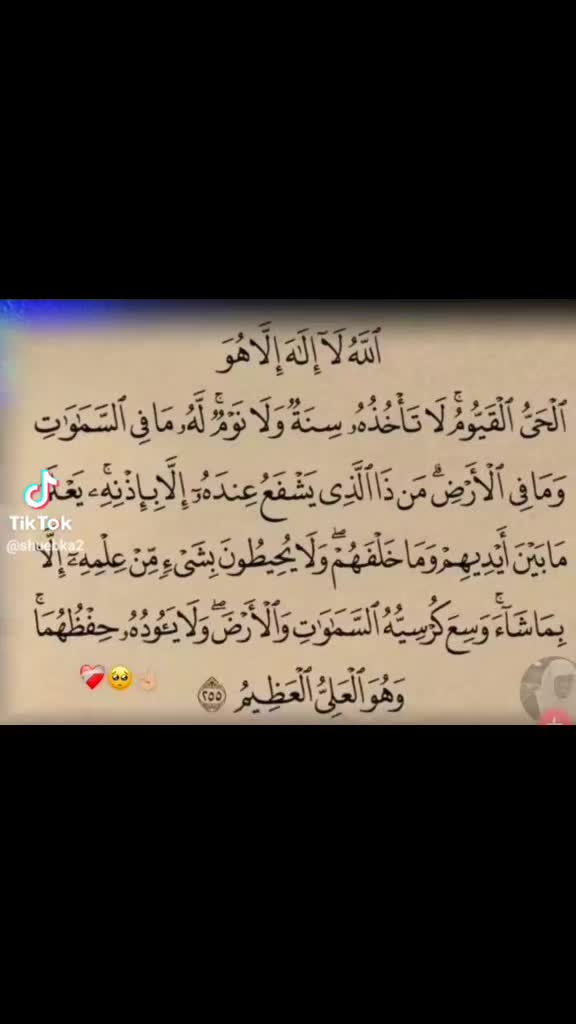 ٱللَّهُ لَآ إِلَٰهَ إِلَّا هُوَ
ٱلْحَىُّ ٱلْقَيُّومُ ۚ لَا تَأْخُذُهُۥ سِنَةٌ وَلَا نَوْمٌ ۚ لَّهُۥ مَا فِى ٱلسَّمَٰوَٰتِ
وَمَا فِى ٱلْأَرْضِ ۗ مَن ذَا ٱلَّذِى يَشْفَعُ عِندَهُۥٓ إِلَّا بِإِذْنِهِۦ ۚ
مَا بَيْنَ أَيْدِيهِمْ وَمَا خَلْفَهُمْ ۖ وَلَا يُحِيطُونَ بِشَىْءٍ مِّنْ عِلْمِهِۦٓ إِلَّا
بِمَا شَآءَ ۚ وَسِعَ كُرْسِيُّهُ ٱلسَّمَٰوَٰتِ وَٱلْأَرْضَ ۖ وَلَا يَـُٔودُهُۥ حِفْظُهُمَا ۚ
وَهُوَ ٱلْعَلِىُّ ٱلْعَظِيمُ ٢٥٥
TikTok
@shuebka2